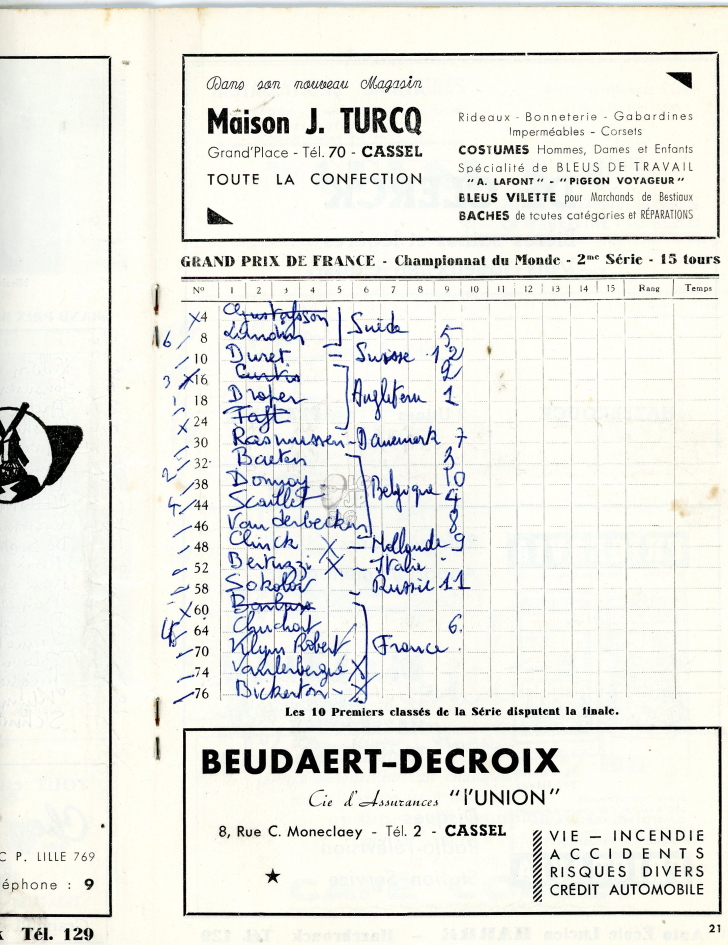 Dans son nouveau Magasin
Maison J. TURCQ
Grand'Place - Tél. 70 - CASSEL
TOUTE LA CONFECTION
Rideaux - Bonneterie - Gabardines
Imperméables - Corsets
COSTUMES Hommes, Dames et Enfants
Spécialité de BLEUS DE TRAVAIL
"A. LAFONT" - "PIGEON VOYAGEUR"
BLEUS VILETTE pour Marchands de Bestiaux
BACHES de toutes catégories et RÉPARATIONS
GRAND PRIX DE FRANCE - Championnat du Monde - 2me Série - 15 tours
No 1 2 3 4 5 6 7 8 9 10 11 12 13 14 15 Rang Temps
X 4 Gustafsson
6 8 Lundin Suède 5
10 Duret = Suisse 12
3 X 16 Curtis 2
18 Draper Angleterre 1
X 24 Taft
30 Rasmussen - Danemark 7
32 Baeten 3
2 38 Donnay Belgique 10
4 44 Scaillet 4
46 Vanderbecken 8
48 Clinck X - Hollande 9
52 Bertuzzi X - Italie
58 Sokolov - Russie 11
X 60
64 6
70 Klym Robert France
74 Vanterbergue X
76 Bickerton - X
Les 10 Premiers classés de la Série disputent la finale.
BEUDAERT-DECROIX
Cie d'Assurances "l'UNION"
8, Rue C. Moneclaey - Tél. 2 - CASSEL
VIE - INCENDIE
ACCIDENTS
RISQUES DIVERS
CRÉDIT AUTOMOBILE
C P. LILLE 769
éphone : 9
k Tél. 129
21